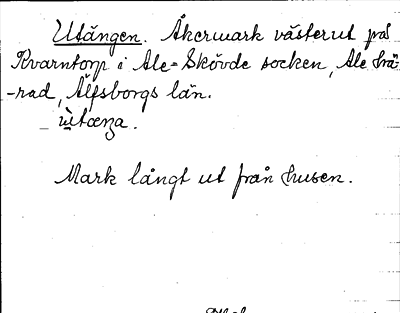 Utängen. Åkermark västerut på
Kvarntorp i Ale-Skövde socken, Ale hä-
-rad, Älfsborgs län.
Mark långt ut från husen.